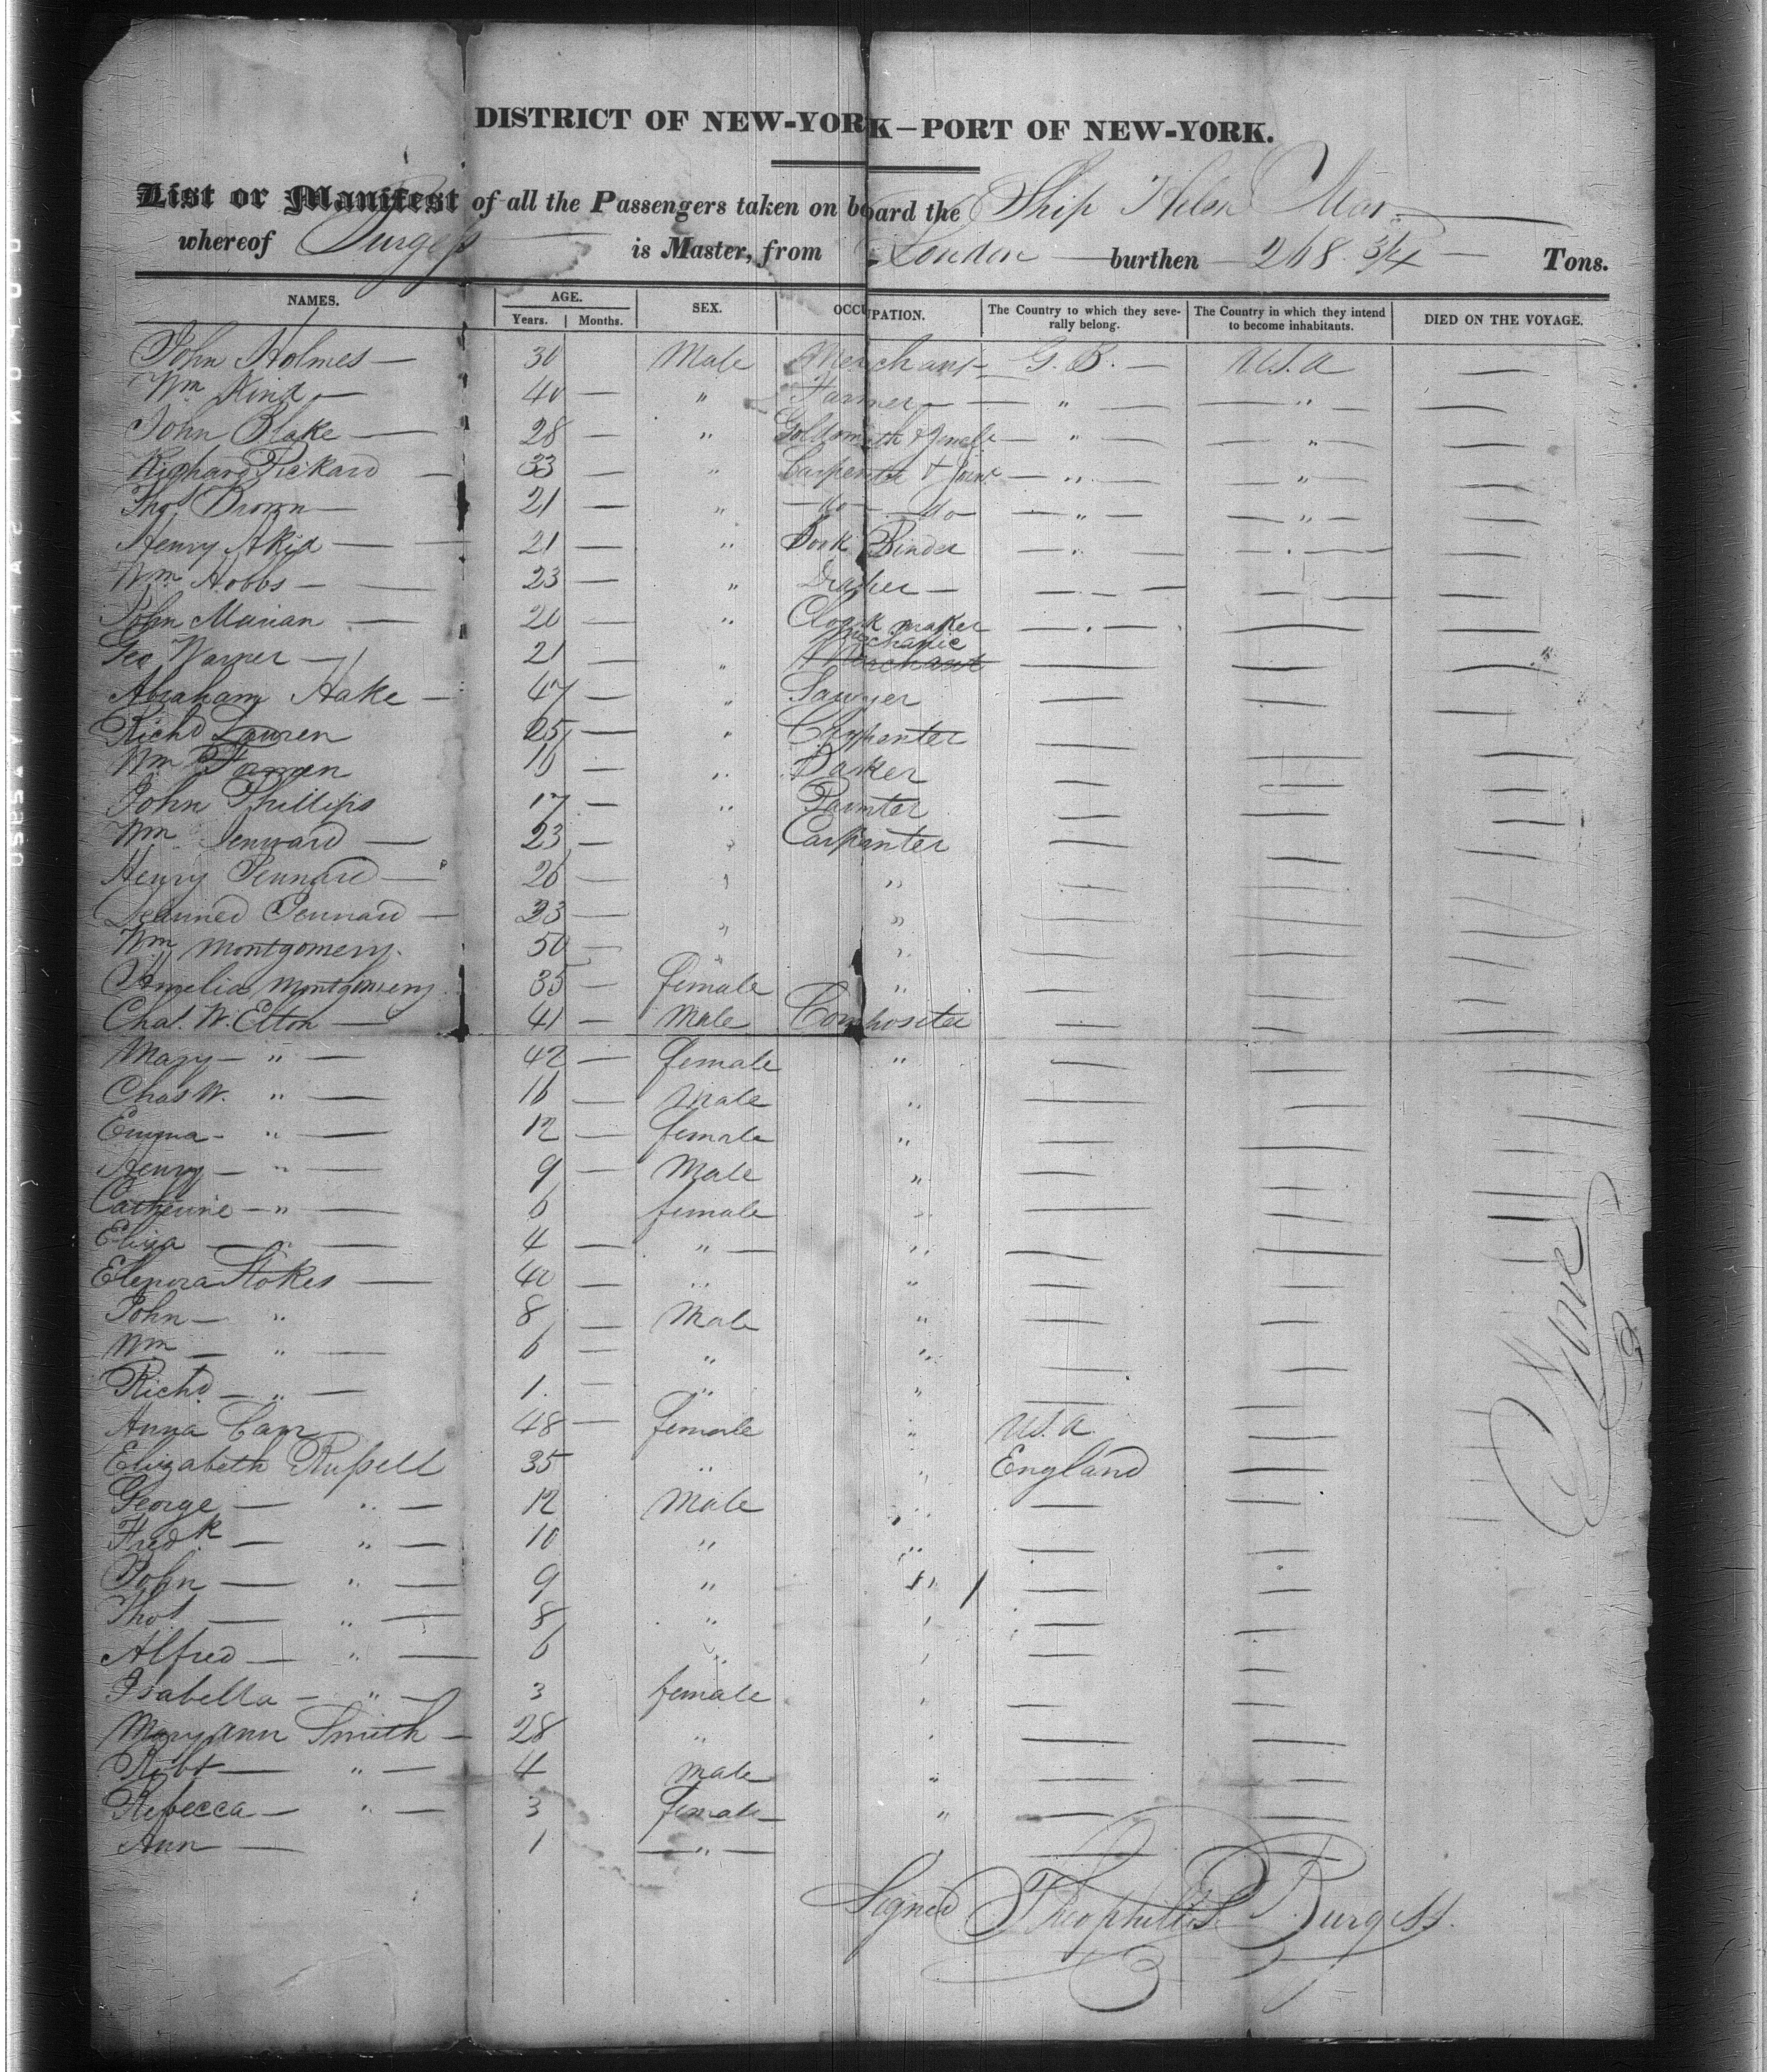 DISTRICT OF NEW-YORK—PORT OF NEW-YORK.
List or Manifest of all the Passengers taken on board the Ship Helen Mar.
whereof Burgess is Master, from London burthen 268 3/4 Tons.
NAMES. AGE. SEX. OCCUPATION. The Country to which they seve- The Country in which they intend DIED ON THE VOYAGE.
Years. Months. rally belong. to become inhabitants.
John Holmes — 30 Male Merchant G. B. — U.S.A —
Wm — 40 — " Farmer — — " — — " — —
John Blake — 28 — " Goldsmith & — " — — " — —
Richard Pickard — 33 — " Carpenter & — " — — " — —
Thos Brown — 21 — " — do — do — — " — — " — —
Henry Akid — — 21 — " Book Binder — " — — " — —
Wm Hobbs — — 23 — " Draper — — " — — " — —
John Marian — 20 — " Clock maker — " — — —
Geo Warner — 21 — " mechanic — — —
Abraham Hake — 47 — " Sawyer — — —
Richd Lauren 25 — " Carpenter — — —
Wm 16 — " Baker — — —
John Phillips 17 — " Painter — — —
Wm — 23 — " Carpenter — — —
Henry Pennard — 26 — " " — — —
Pennard — 23 — " " — — —
Wm Montgomery. 50 — " " — — —
Amelia Montgomery 35 — female " — — —
Chas. W. Elton — 41 — Male Compositer — — —
Mary — " — 42 — female " — — —
Chas W. " — 16 — Male " — — —
Emma — " — 12 — female " — — —
Henry — " — 9 — Male " — — —
Catherine — " — 6 female " — — —
Eliza — " — 4 — " — " — — —
Elenora Stokes — 40 — " " — —
John — " 8 — Male " — —
Wm — " — 6 — " " — —
Richd — " — 1. — " " — —
Anna Carr 48 — female " U.S.A —
Elizabeth Russell 35 " " England —
George — " — 12 Male " — —
Fredk — " — 10 " " — —
John — " — 9 " " — —
Thos — " — 8 " " — —
Alfred — " — 6 " " — —
Isabella — " — 3 female " — —
Mary Ann Smith — 28 " " — —
Robt — " — 4 male " — —
Rebecca — " — 3 female " — —
Ann — 1 — " — " — —
None
Signed Theophilus Burgess.